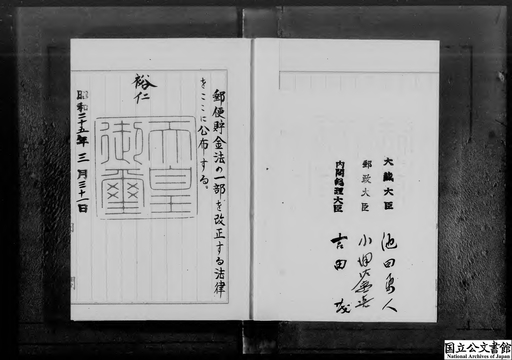 郵便貯金法の一部を改正する法律
をここに公布する。
裕仁
天皇
御璽
昭和二十五年三月三十一日
内閣総理大臣 吉田茂
郵政大臣 小
大蔵大臣 池田勇人
国立公文書館
National Archives of Japan